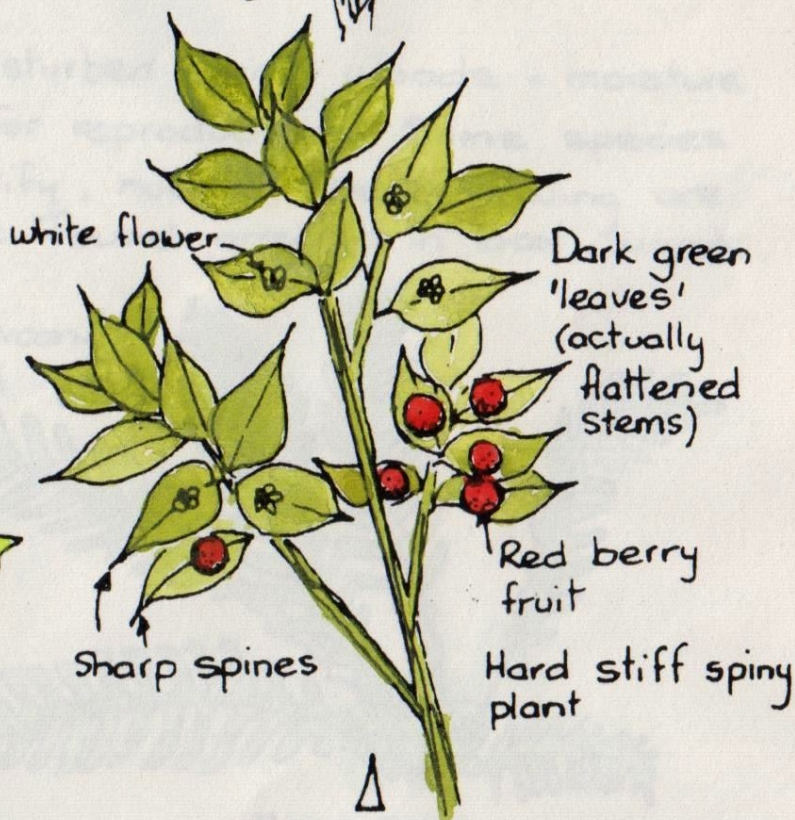 white flower
Dark green
'leaves'
(actually
flattened
stems)
Red berry
fruit
Sharp spines
Hard stiff spiny
plant